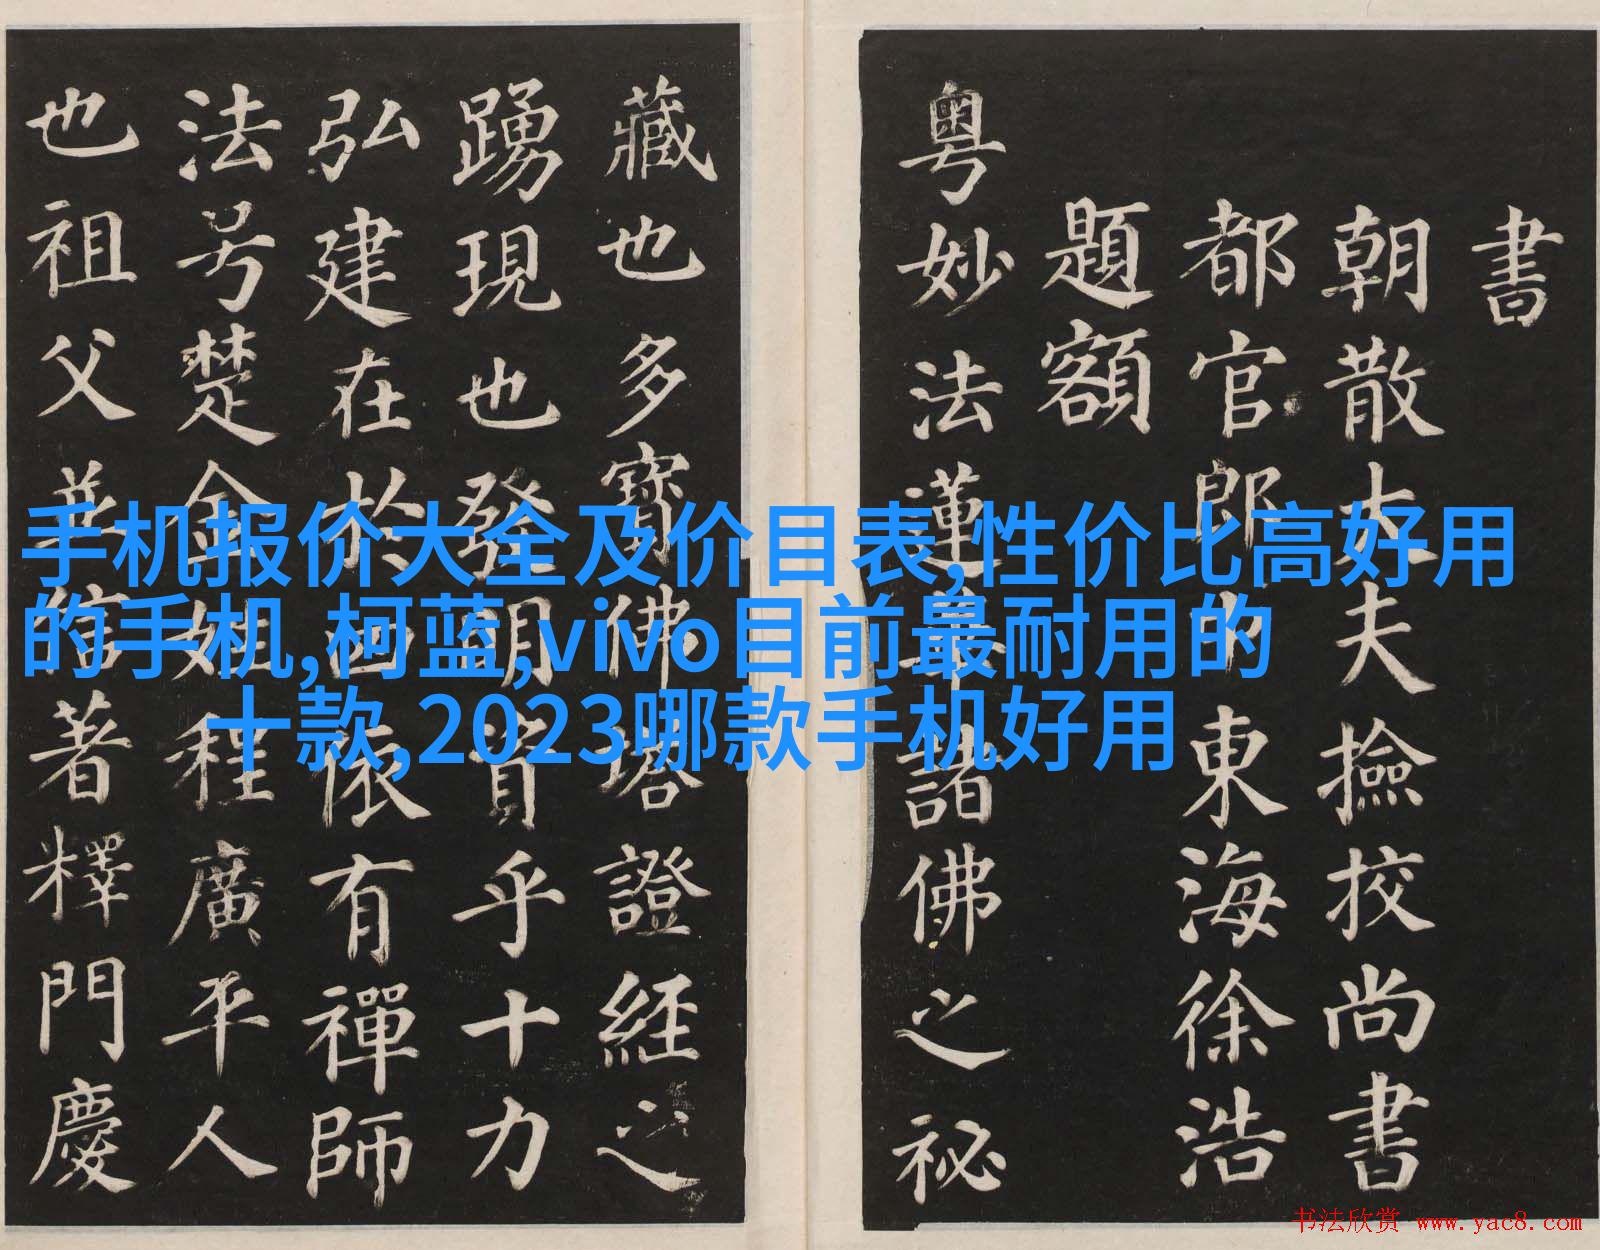 書
朝散大夫撿挍尚書
都官郎中東海徐浩
題額
粵妙法蓮華諸佛之秘
藏也多寶佛塔證經之
踴現也發明資乎十力
弘建在於四依有禪師
法号楚金姓程廣平人
也祖父並信著釋門慶
手机报价大全及价目表,性价比高好用
的手机,柯蓝,vivo目前最耐用的
十款,2023哪款手机好用
书法欣赏 www.yac8.com